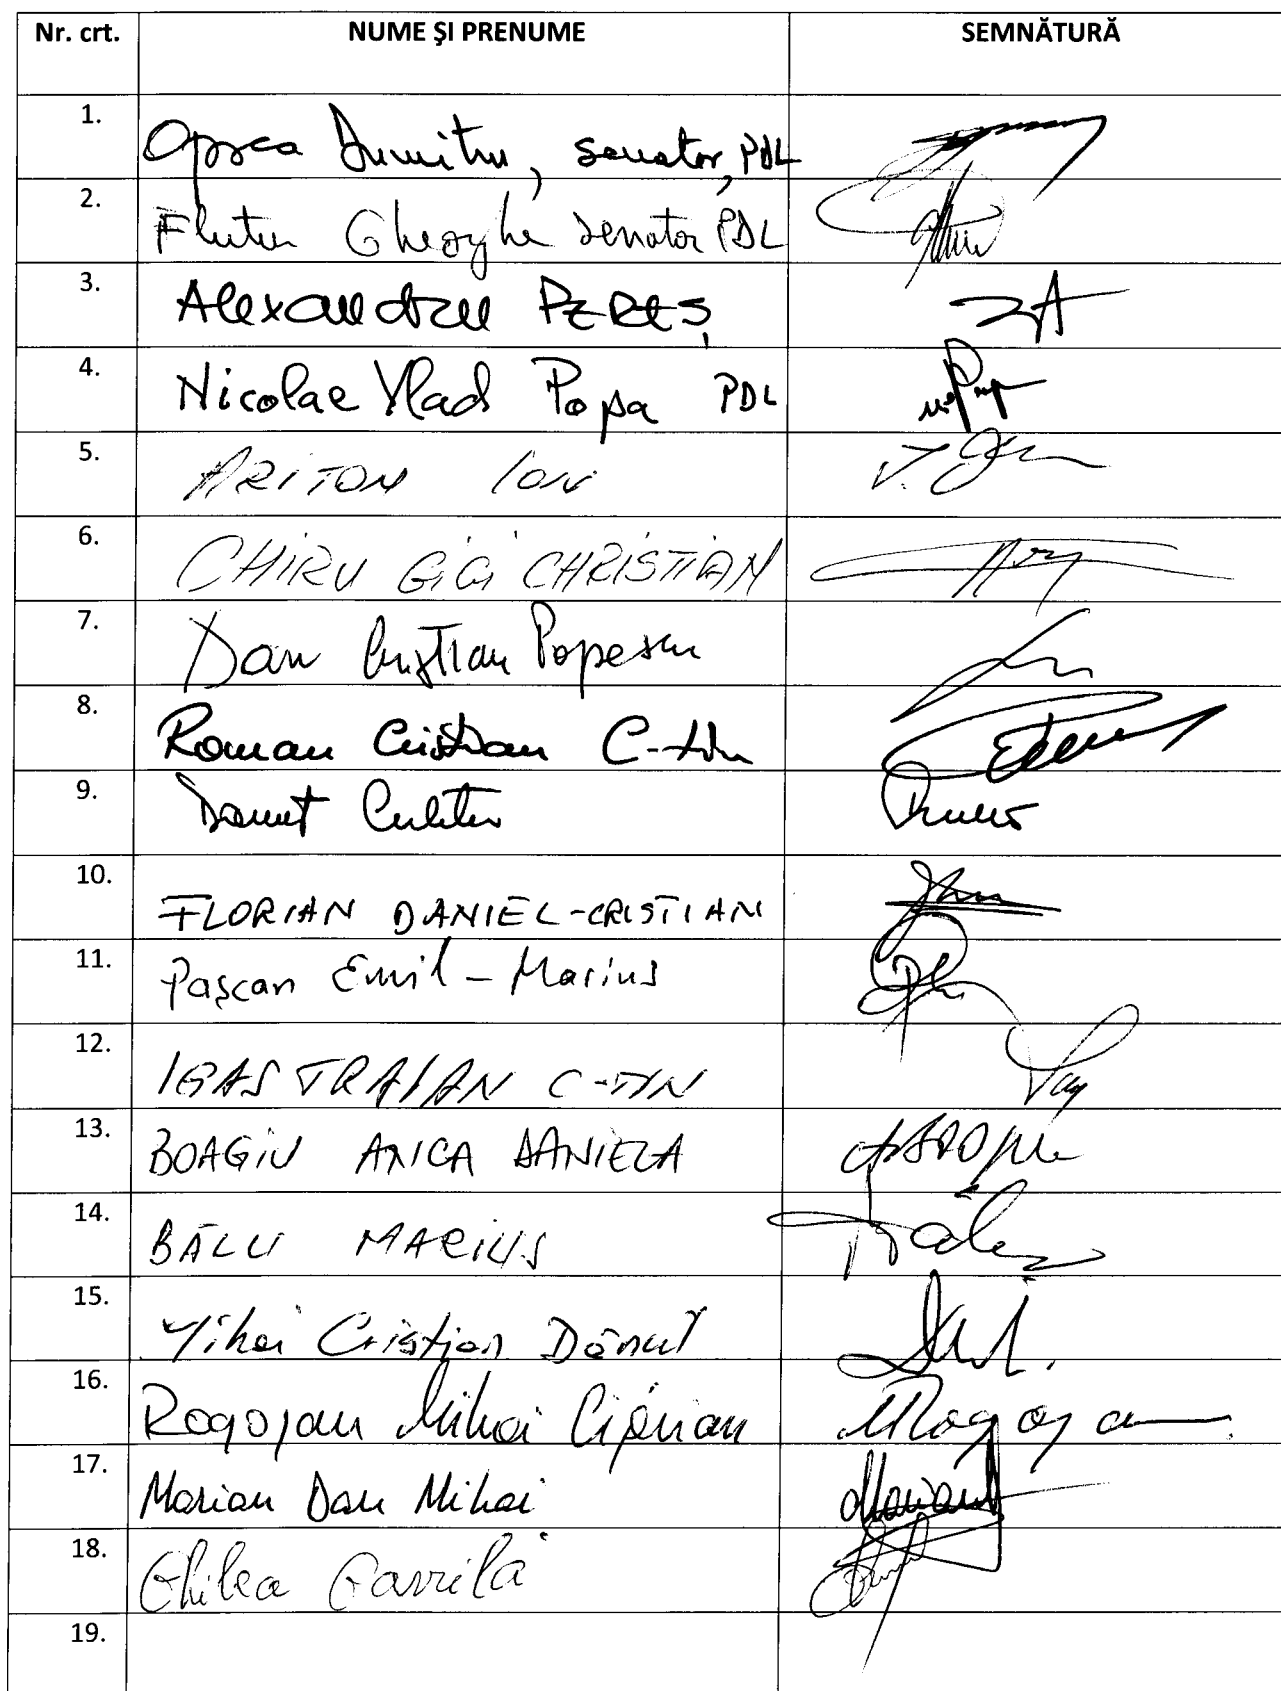 Nr. crt. NUME ŞI PRENUME SEMNĂTURĂ
1. Oprea Dumitru, senator, PDL
2. Flutur Gheorghe senator PDL
3. Alexandru PEREȘ
4. Nicolae Vlad Popa PDL
5. ARITON ION
6. CHIRU GIGI CHRISTIAN
7. Dan Cristian Popescu
8. Roman Cristian C-tin
9.
10. FLORIAN DANIEL-CRISTIAN
11. Pașcan Emil-Marius
12. IGAS TRAIAN C-TIN
13. BOAGIU ANCA DANIELA
14. BĂLU MARIUS
15. Mihai Cristian Dănuț
16. Rogojan Mihai Ciprian Rogojan
17. Marian Dan Mihai
18. Ghilea Găvrilă
19.